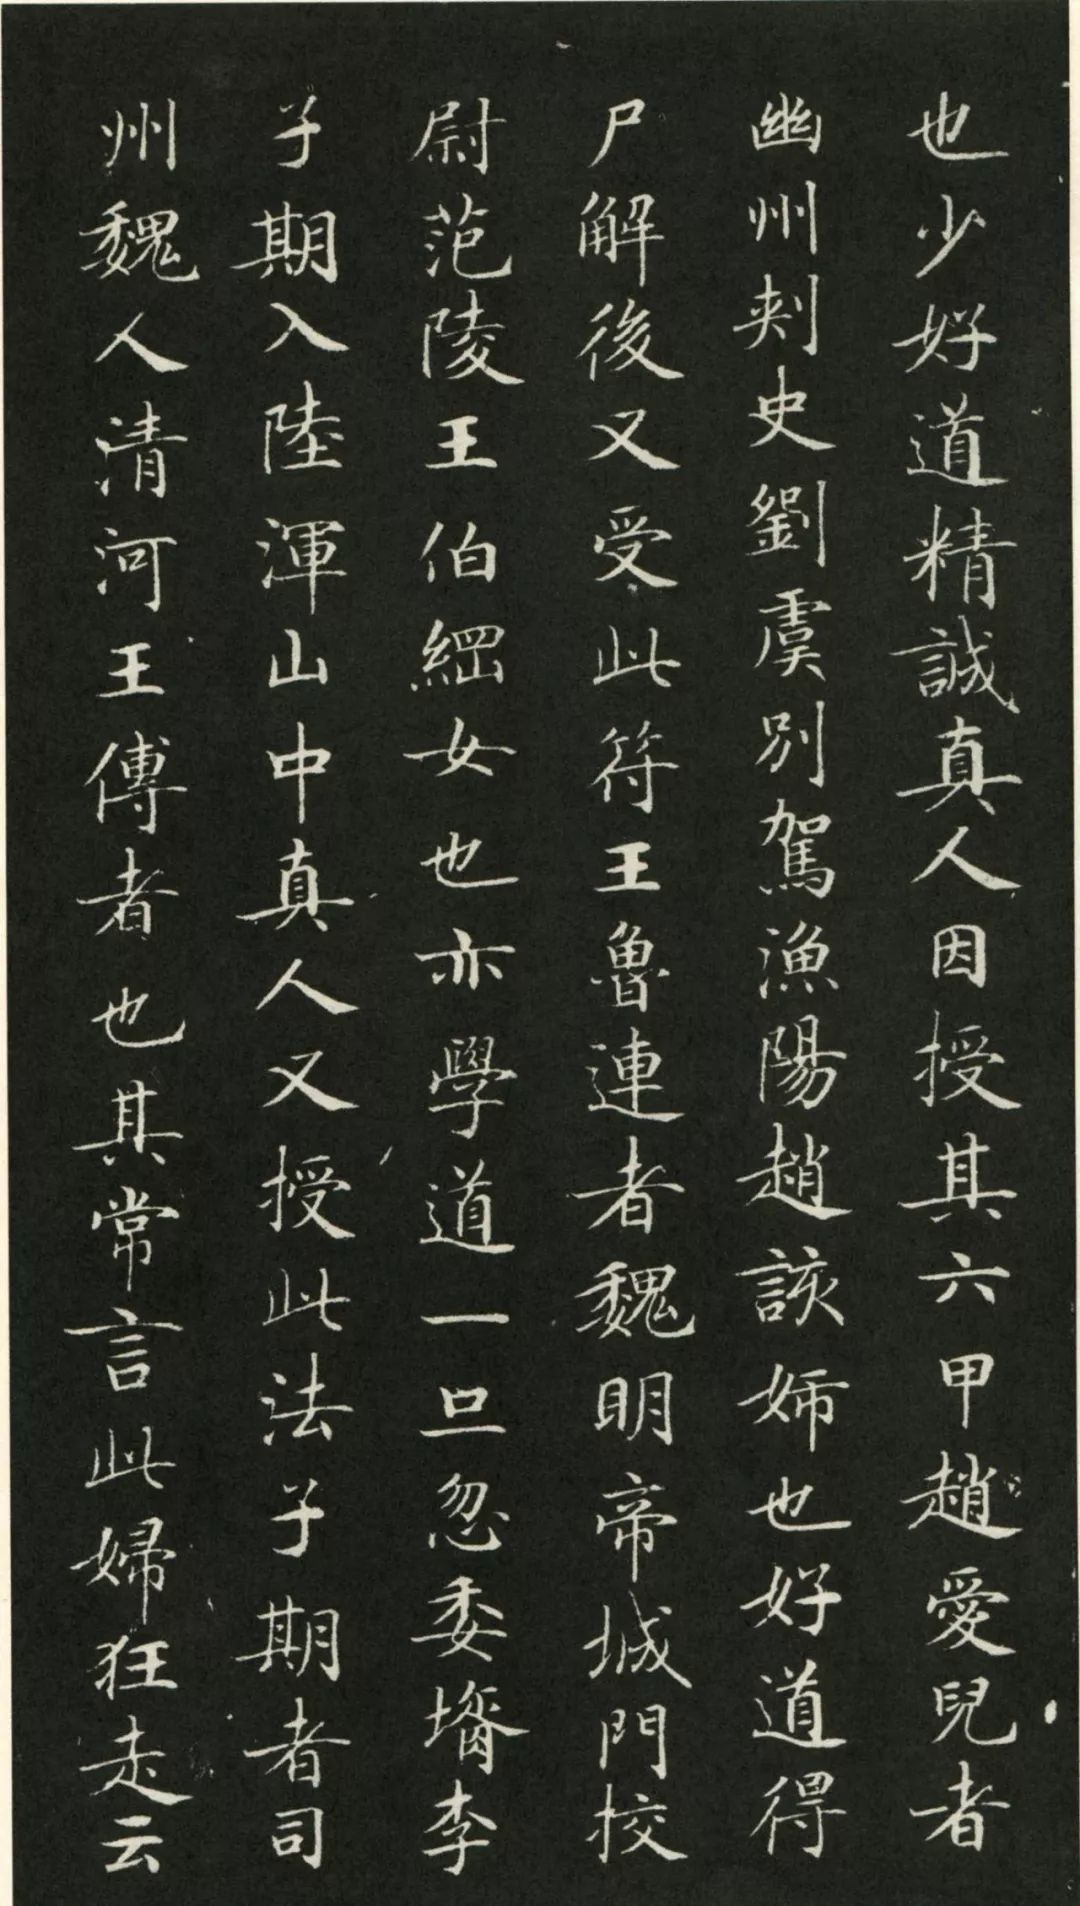 也少好道精誠真人因授其六甲趙愛兒者
幽州刾史劉虞別駕漁陽趙該姉也好道得
尸解後又受此符王魯連者魏明帝城門校
尉范陵王伯綱女也亦學道一旦忽委壻李
子期入陸渾山中真人又授此法子期者司
州魏人清河王傅者也其常言此婦狂走云